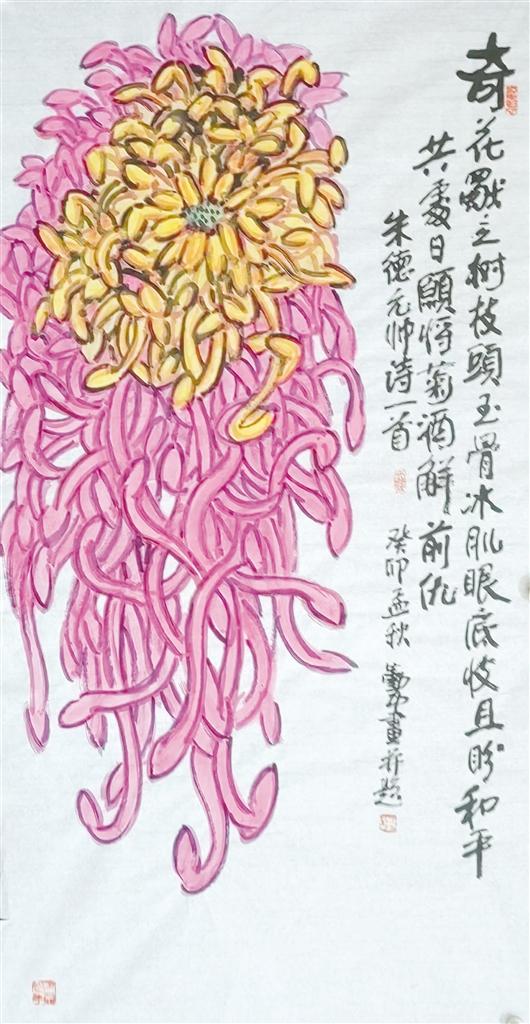 奇花獨立树枝頭玉骨冰肌眼底收且盼和平
共處日願将菊酒解前仇
朱德元帅诗一首
癸卯孟秋 畫并题